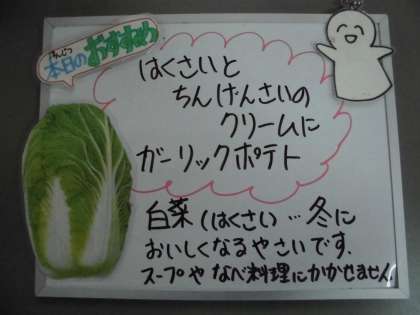 本日のおすすめ
はくさいと
ちんげんさいの
クリームに
ガーリックポテト
白菜(はくさい…冬に
おいしくなるやさいです.
スープや なべ料理にかかせません!